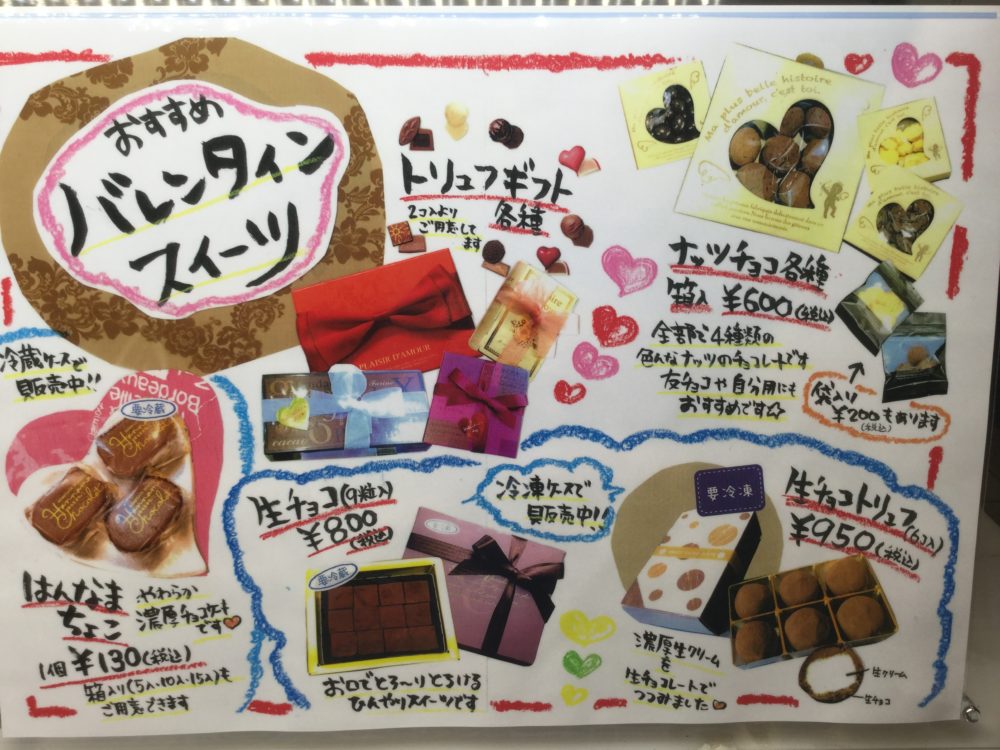 おすすめ
バレンタイン
スイーツ
トリュフギフト
各種
2コ入より
ご用意して
ます
Ma plus belle histoire
d'amour, c'est toi.
ナッツチョコ各種
箱入 ¥600(税込)
全部で4種類の
色んなナッツのチョコレートです
友チョコや自分用にも
おすすめです☆
袋入り
¥200もあります
(税込)
PLAISIR D'AMOUR
cacao
冷蔵ケースで
販売中!!
Bordeaux
要冷蔵
はんなま
ちょこ
やわらか
濃厚チョコケーキ
です♥
1個 ¥130(税込)
箱入り(5入・10入・15入)も
ご用意できます
生チョコ(9粒入)
¥800
(税込)
要冷蔵
要冷蔵
お口でとろ〜りとろける
ひんやりスイーツです
冷凍ケースで
販売中!!
要冷凍
生チョコトリュフ(6コ入)
¥950(税込)
濃厚生クリーム
を
生チョコレートで
つつみました♥
生クリーム
生チョコ